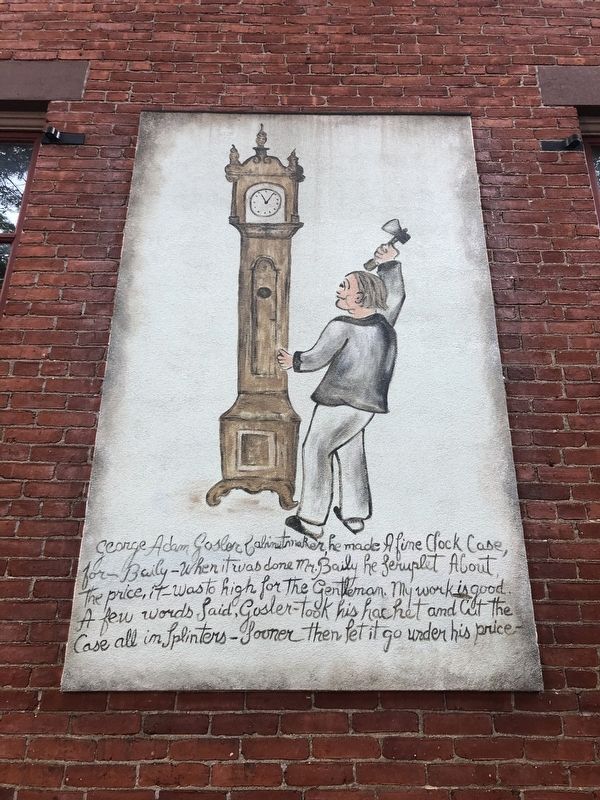 George Adam Gosler Cabinetmaker, he made A fine Clock Case,
for — Baily — When it was done Mr. Baily he Scruplet About
The price, it was to high for the Gentleman. My work is good.
A few words, Said, Gosler – took his hachet and Cut the
Case all in Splinters – Sooner then let it go under his price –